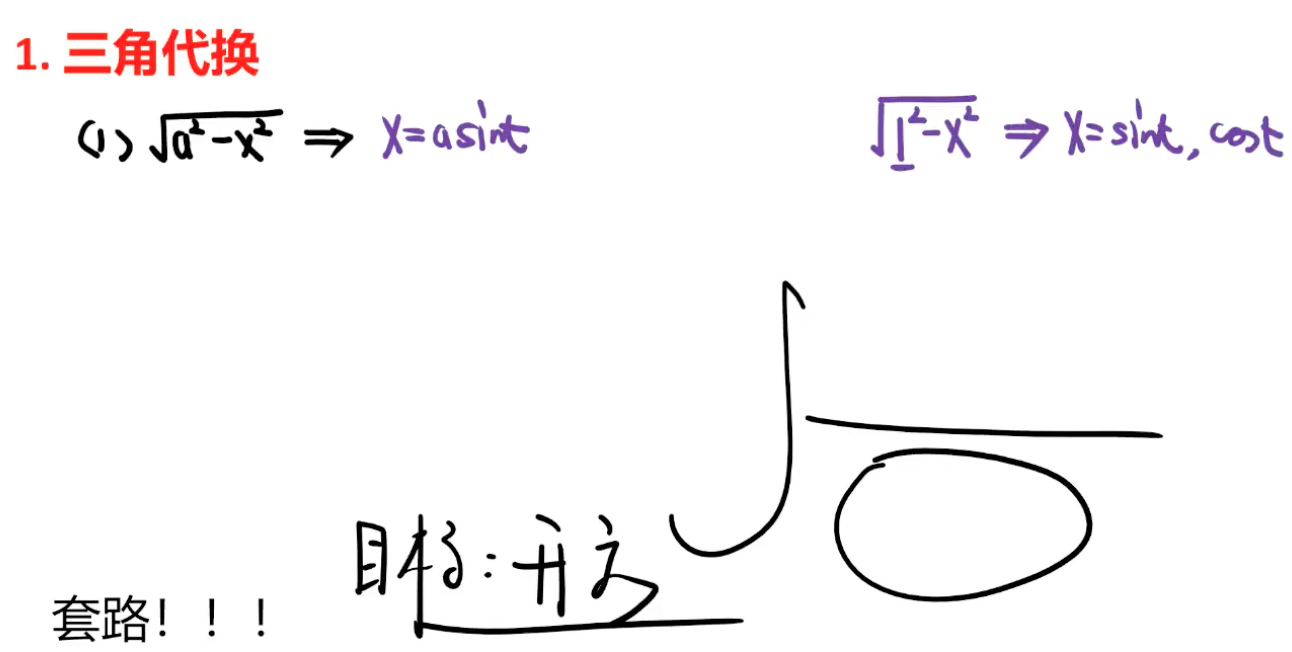 1. 三角代换
(1) √(a²-x²) ⇒ x=asint
√(1²-x²) ⇒ x=sint, cost
目标:开方
套路！！！